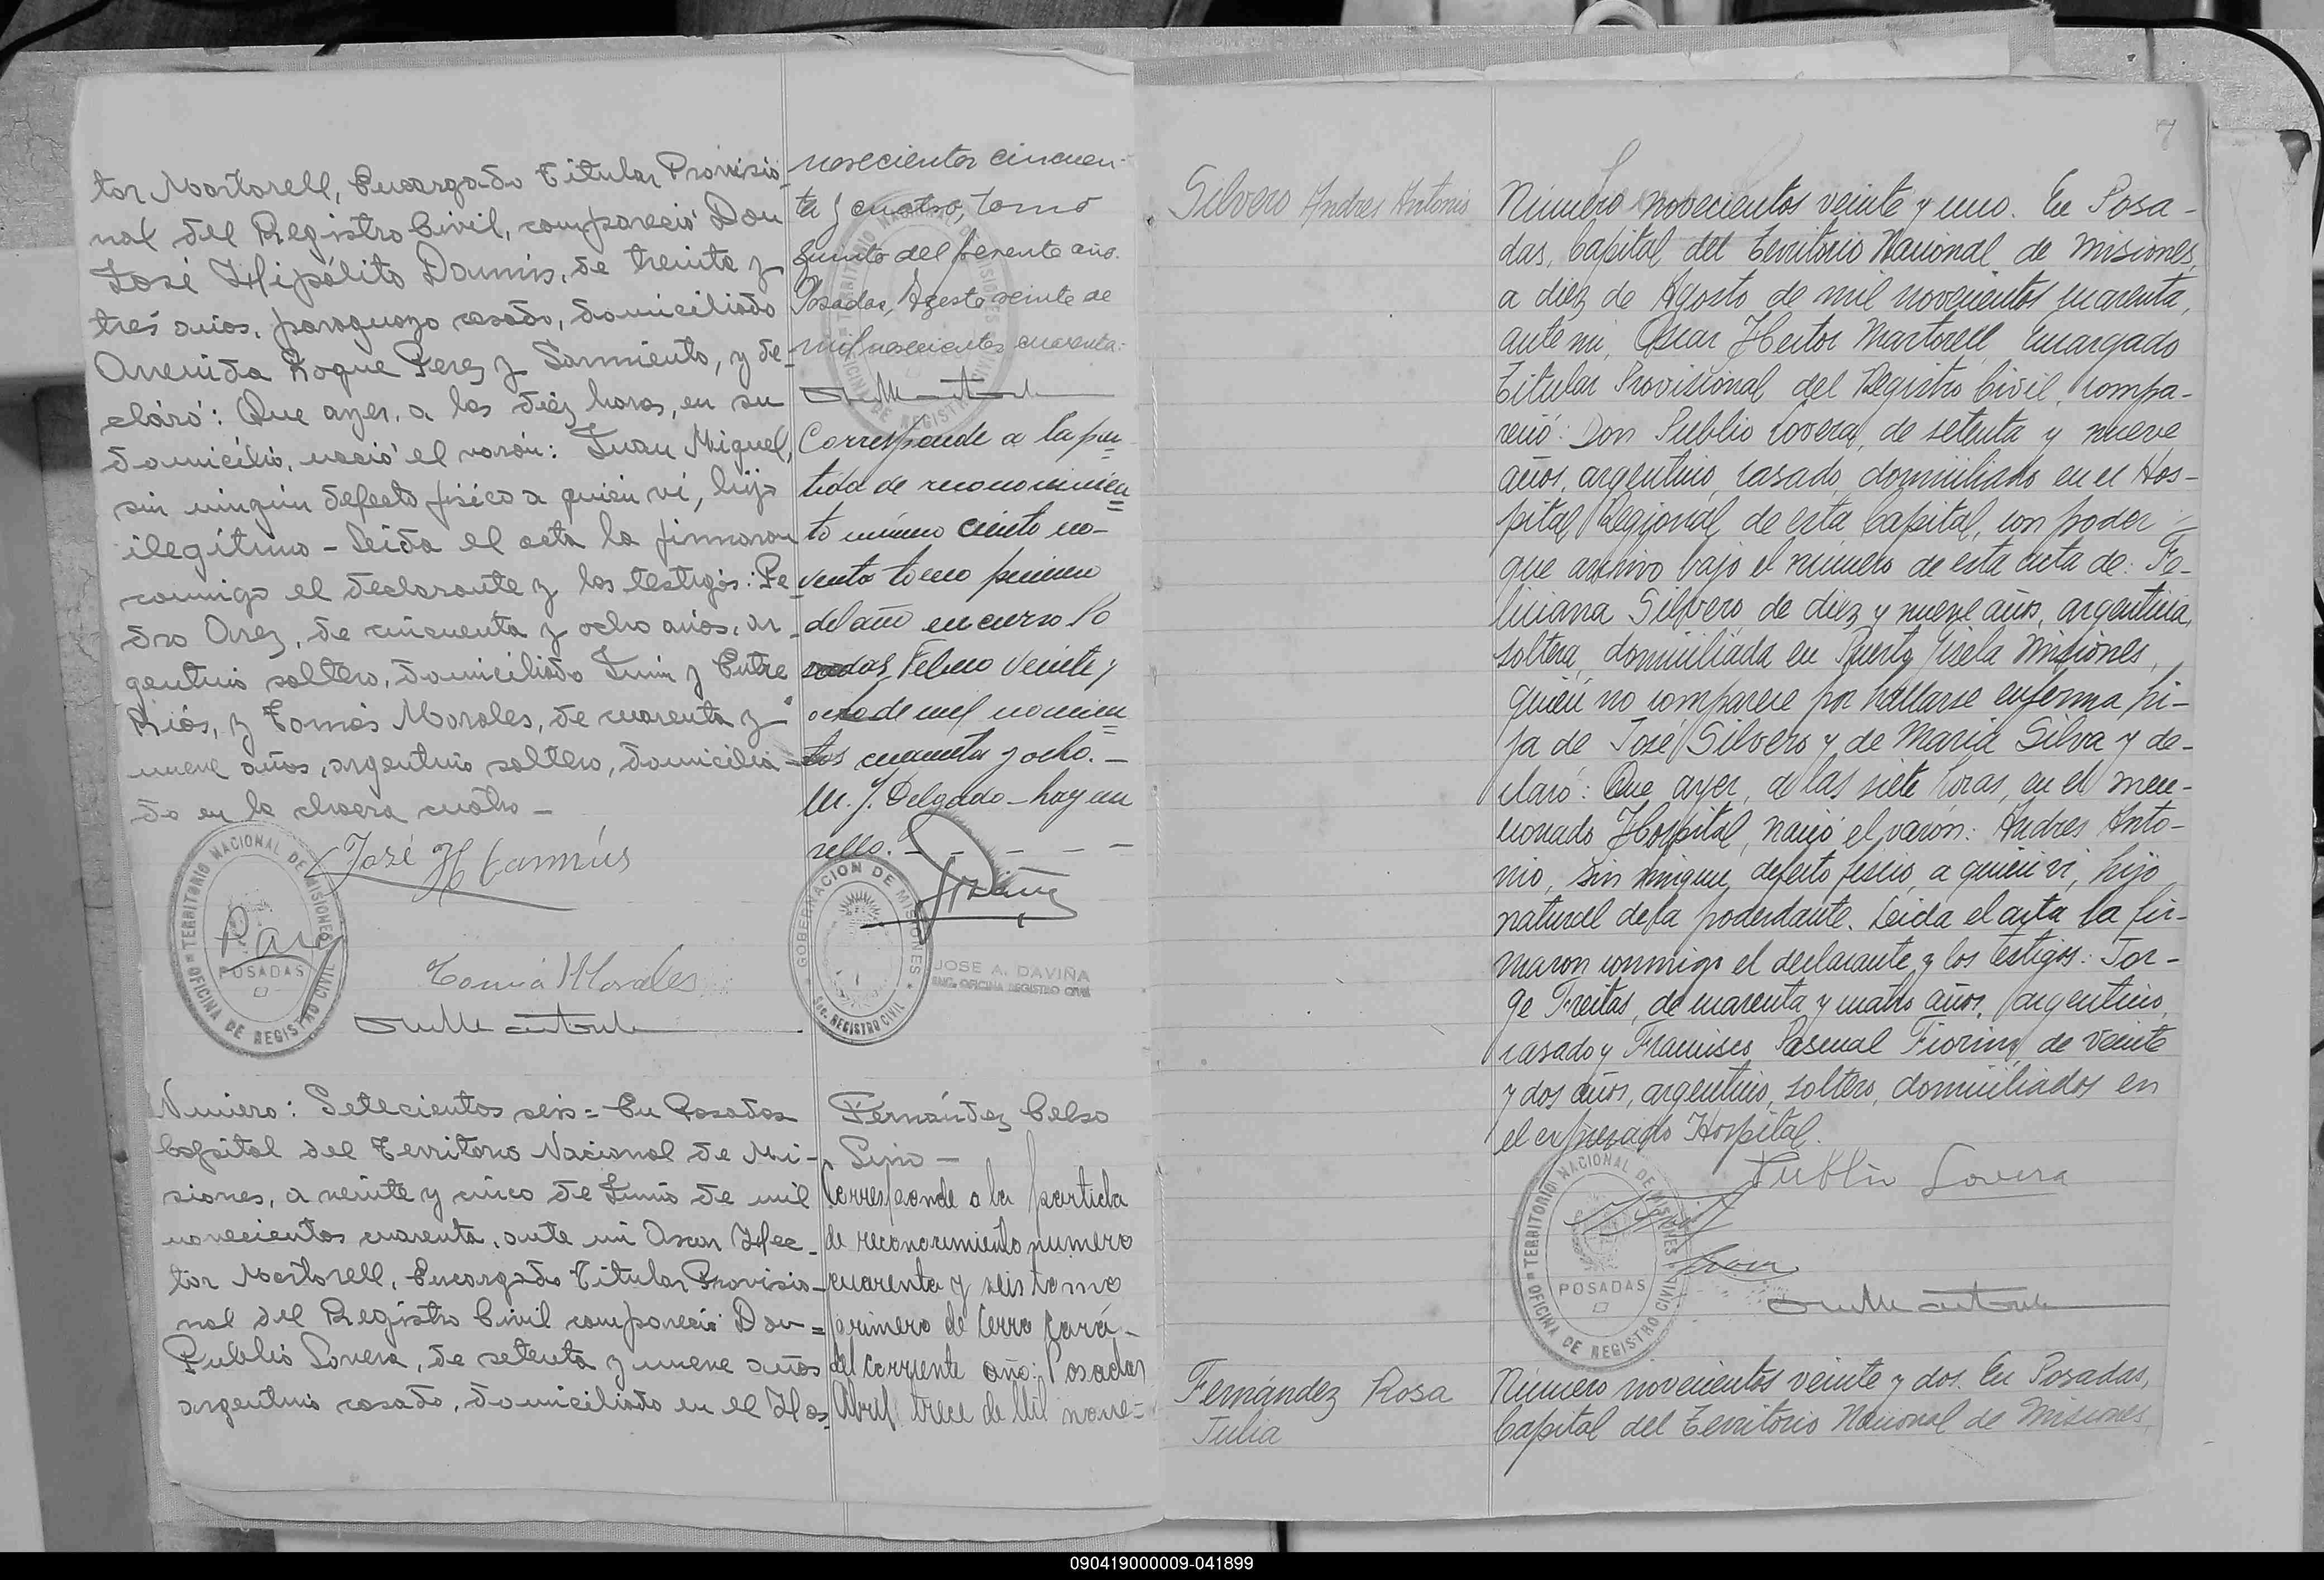 tor Martorell, Encargado Titular Provisio-
nal del Registro Civil, compareció Don
José Hipólito Dannús, de treinta y
tres años, paraguayo casado, domiciliado
Avenida Roque Perez y Sarmiento, y de-
claró: Que ayer, a las diéz horas, en su
domicilio, nació el varón: Juan Miguel,
sin ningún defecto fisico a quien ví, hijo
ilegítimo - Leida el acta la firmaron
conmigo el declarante y los testigos: Pe-
dro Arez, de cincuenta y ocho años, ar-
gentino soltero, domiciliado Junin y Entre
Riós, y Tomás Morales, de cuarenta y
nueve años, argentino soltero, domicilia-
do en la chacra cuatro -
José H
Tomá Morales
TERRITORIO NACIONAL DE MISIONES
POSADAS
OFICINA DE REGISTRO CIVIL
Número: Setecientos seis = En Posadas
Capital del Territorio Nacional de Mi-
siones, a veinte y cinco de Junio de mil
novecientos cuarenta, ante mi Oscar Hec-
tor Martorell, Encargado Titular Provisio-
nal del Registro Civil compareció Don =
Publio Lovera, de setenta y nueve años
argentino casado, domiciliado en el Hos-
novecientos cincuen-
ta y cuatro, tomo
quinto del presente año.
Posadas, Agosto veinte de
mil novecientos cuarenta.
Corresponde a la par-
tida de reconocimien
to número ciento no-
venta tomo primero
del año en curso Po
sadas, Febrero veinte y
ocho de mil novecien
tos cuarenta y ocho. -
M. J. Delgado - hay un
sello. - - - - -
GOBERNACION DE MISIONES
Sec. REGISTRO CIVIL
JOSE A. DAVIÑA
ENC. OFICINA REGISTRO CIVIL
Fernández Celso
Lino -
Corresponde a la partida
de reconocimiento numero
cuarenta y seis tomo
primero de Cerro Corá -
del corriente año: Posadas
Abril trece de Mil nove-
7
Silvero Andres Antonio
Número novecientos veinte y uno. En Posa-
das, Capital del Territorio Nacional de Misiones,
a diez de Agosto de mil novecientos cuarenta,
ante mi, Oscar Hector Martorell, Encargado
Titular Provisional del Registro Civil, compa-
reció: Don Publio Lovera, de setenta y nueve
años, argentino, casado, domiciliado en el Hos-
pital Regional de esta Capital, con poder
que archivo bajo el número de esta acta de: Fe-
liciana Silvero, de diez y nueve años, argentina,
soltera, domiciliada en Puerto Gisela Misiones,
quien no comparece por hallarse enferma, hi-
ja de José Silvero y de Maria Silva y de-
claró: Que ayer, a las siete horas, en el men-
cionado Hospital, nació el varón: Andres Anto-
nio, sin ningun defecto fisico, a quien vi, hijo
natural de la poderdante. Leida el acta la fir-
maron conmigo el declarante y los testigos: Jor-
ge Freitas, de cuarenta y cuatro años, argentino,
casado y Francisco Pascual Fiorini, de veinte
y dos años, argentino, soltero, domiciliados en
el expresado Hospital.
Publio Lovera
TERRITORIO NACIONAL DE MISIONES
POSADAS
OFICINA DE REGISTRO CIVIL
Fernández Rosa
Julia
Número novecientos veinte y dos. En Posadas,
Capital del Territorio Nacional de Misiones,
090419000009-041899